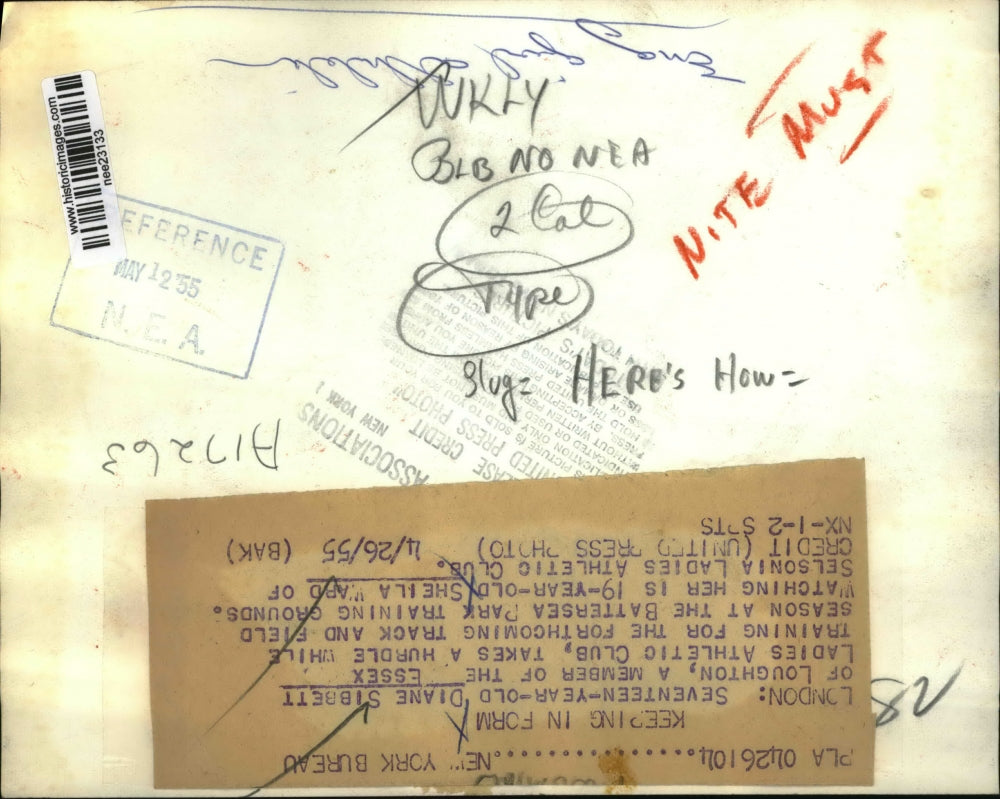 Eng girl athlete
WKLY
BLB NO NEA
2 Col
Type
Slug= HERE'S HOW=
NITE MUST
www.historicimages.com
nee23133
REFERENCE
MAY 12 '55
N. E. A.
A17263
ASSOCIATIONS
NEW YORK
PLEASE CREDIT
UNITED PRESS PHOTO
PLA 0426104...................NEW YORK BUREAU
KEEPING IN FORM
LONDON: SEVENTEEN-YEAR-OLD DIANE SIBBETT
OF LOUGHTON, A MEMBER OF THE ESSEX
LADIES ATHLETIC CLUB, TAKES A HURDLE WHILE
TRAINING FOR THE FORTHCOMING TRACK AND FIELD
SEASON AT THE BATTERSEA PARK TRAINING GROUNDS.
WATCHING HER IS 19-YEAR-OLD SHEILA WARD OF
SELSONIA LADIES ATHLETIC CLUB.
CREDIT (UNITED PRESS PHOTO) 4/26/55 (BAK)
NX-1-2 SPTS